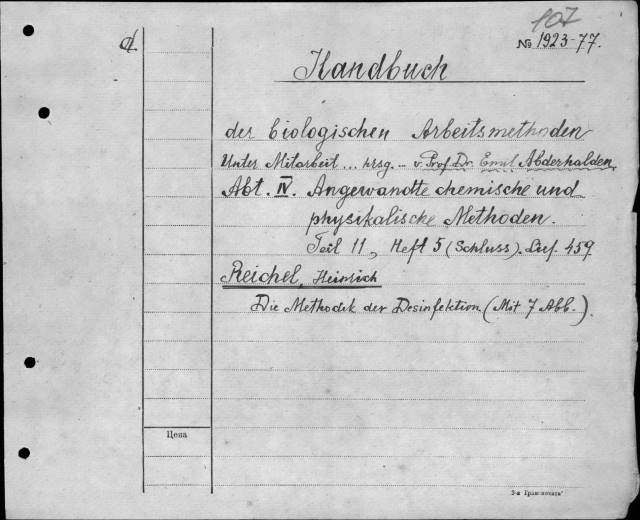 107
№ 1923-77.
Handbuch
der biologischen Arbeitsmethoden
Unter Mitarbeit ... hrsg. - v. Prof. Dr. Emil Abderhalden
Abt. IV. Angewandte chemische und
physikalische Methoden.
Teil 11, Heft 5 (Schluss). Lief. 459
Reichel, Heinrich
Die Methodik der Desinfektion (Mit 7 Abb.).
Цена